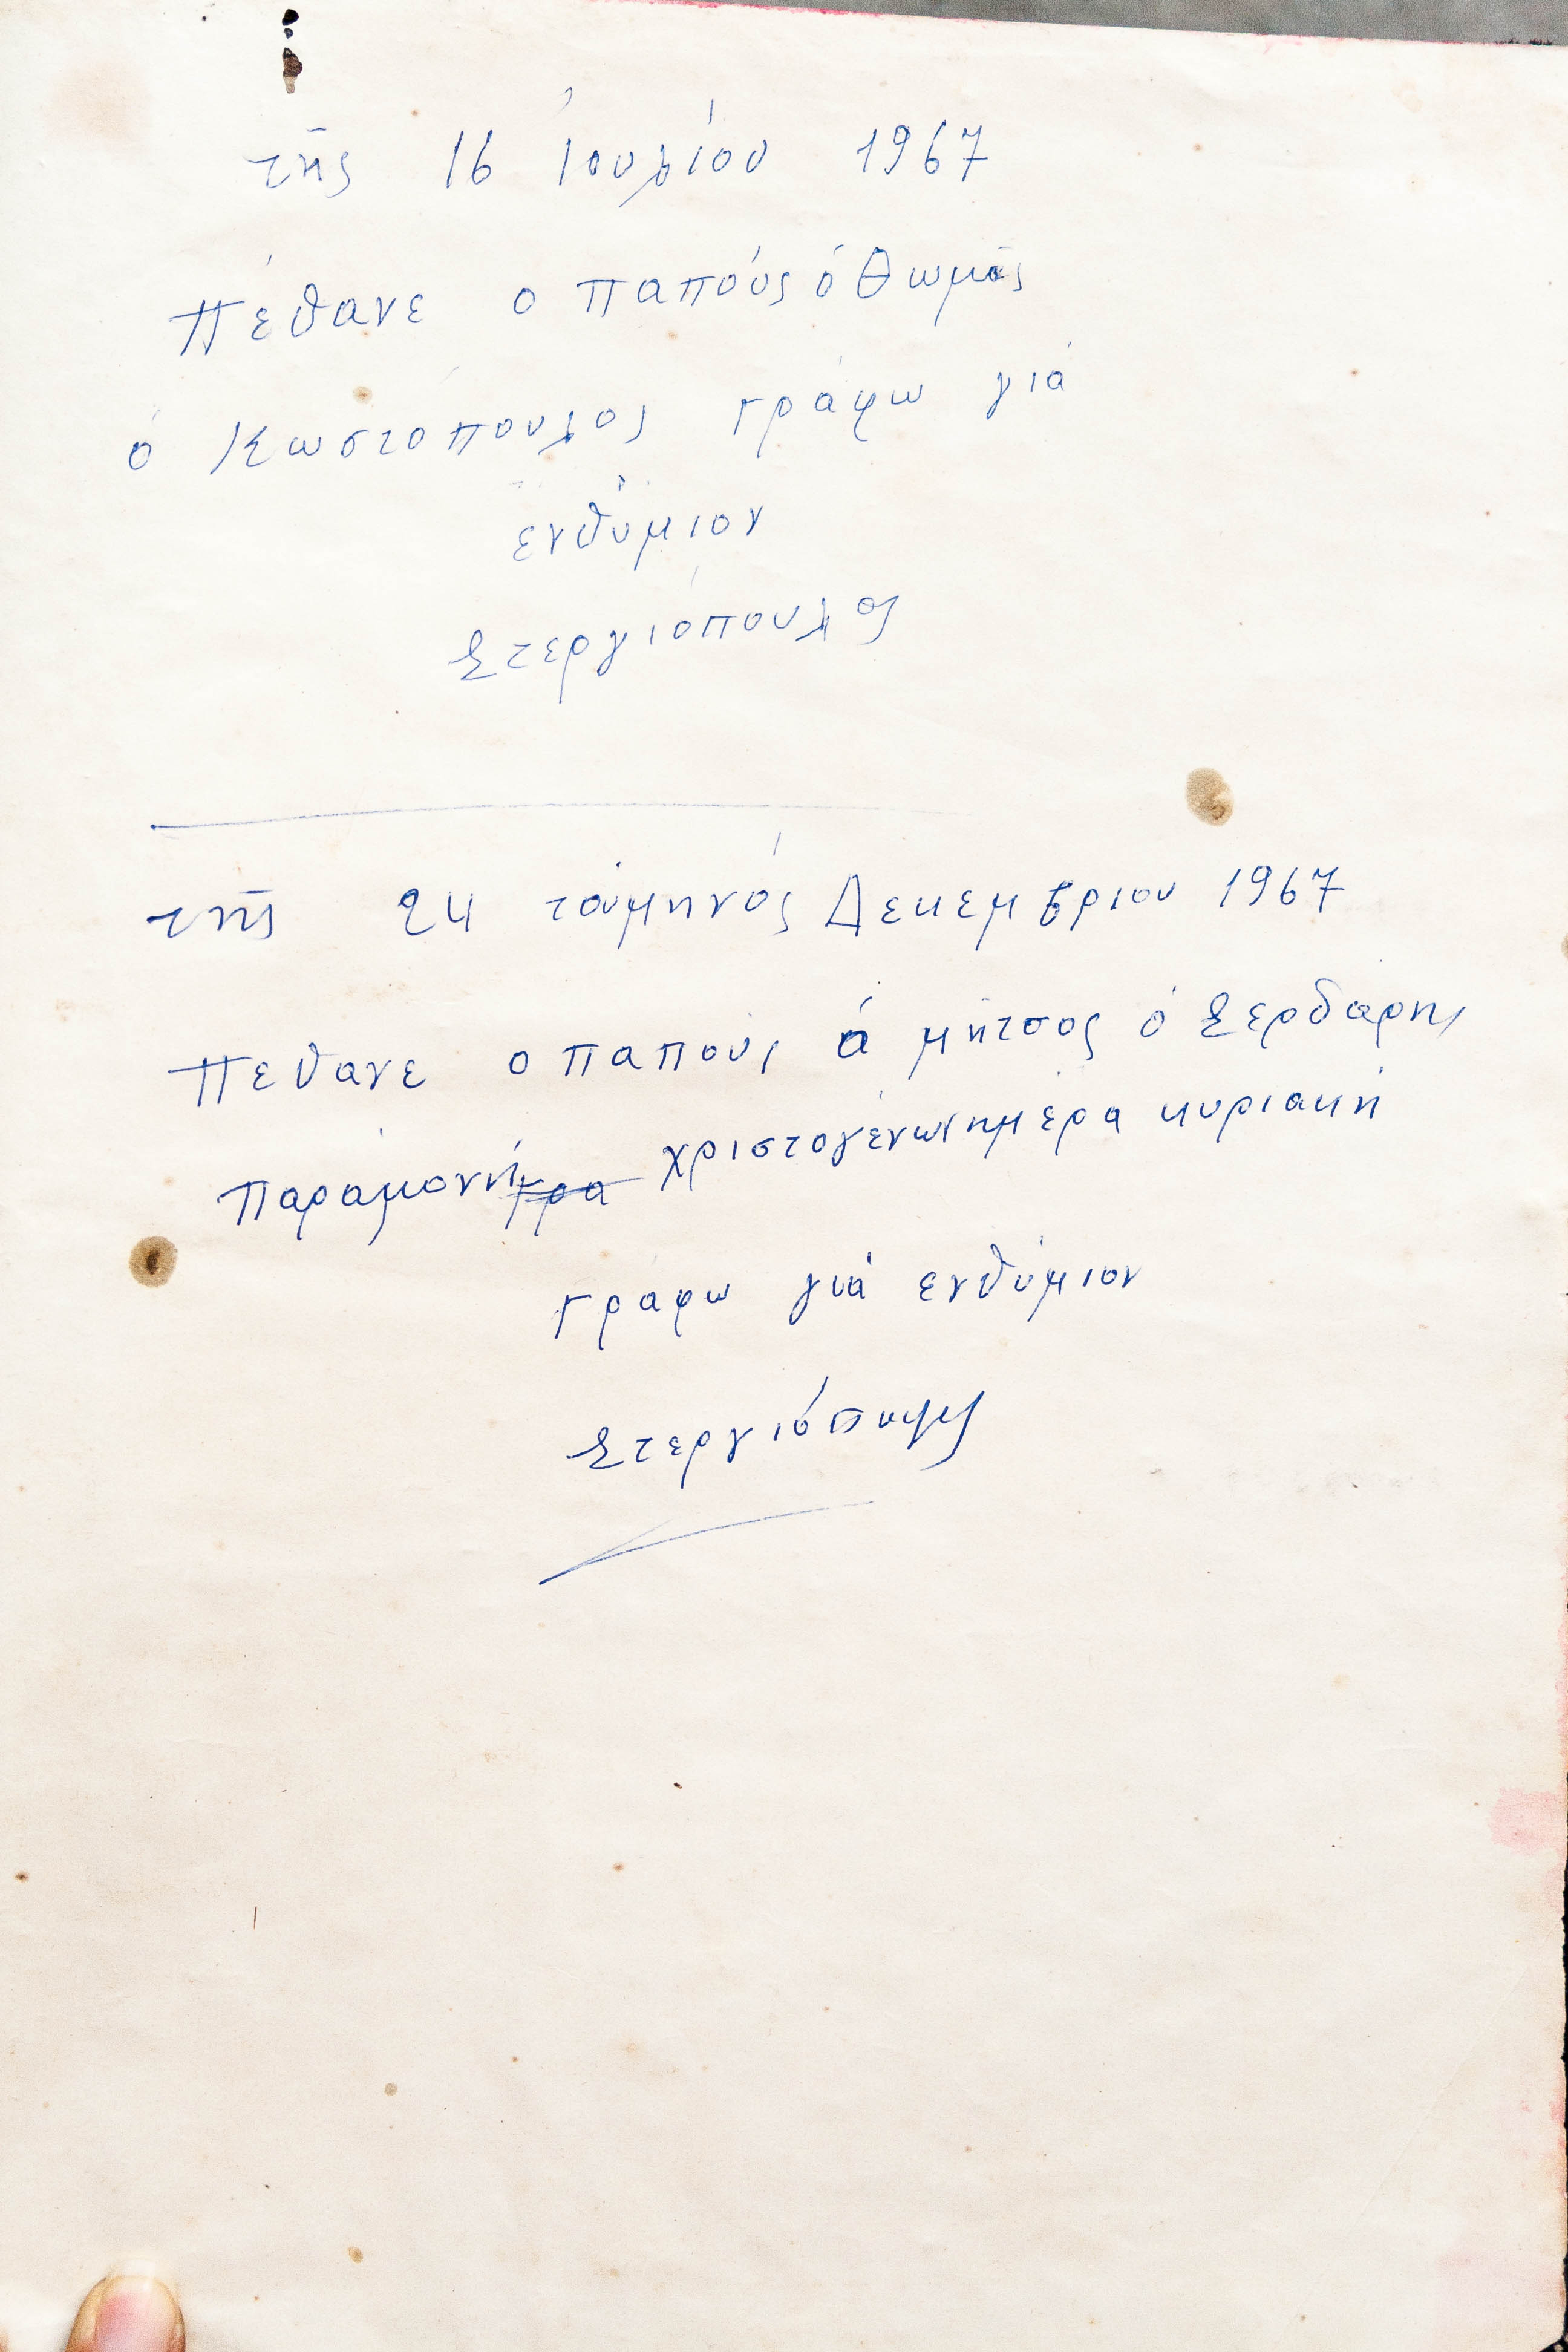 τῆς 16 Ἰουλίου 1967
Πέθανε ο παπούς ό Θωμάς
ό Κωστόπουλος γράφω γιά
ενθύμιον
Στεργιόπουλος
τῆς 24 τούμηνός Δεκεμβριου 1967
Πεθανε ο παπούς ό μήτσος ό Σερδαρης
Παραμονή γρα χριστογένων ημέρα κυριακή
γραφω γιά ενθύμιον
Στεργιόπουλος